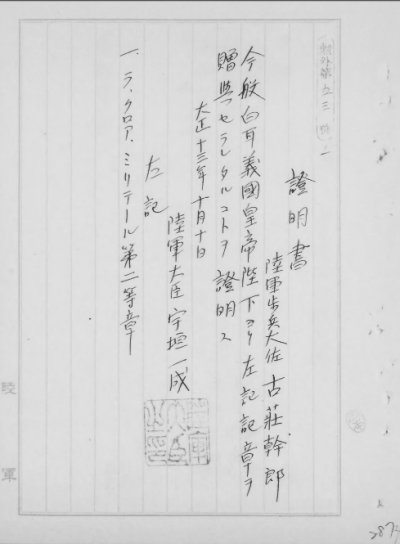 外第五三號ノ一
證明書
陸軍歩兵大佐 古莊幹郎
今般白耳義國皇帝陛下ヨリ左記記章ヲ
贈與セラレタルコトヲ證明ス
大正十三年十月十日
陸軍大臣 宇垣一成
左記
一、ラ、クロア、ミリテール第二等章
陸軍